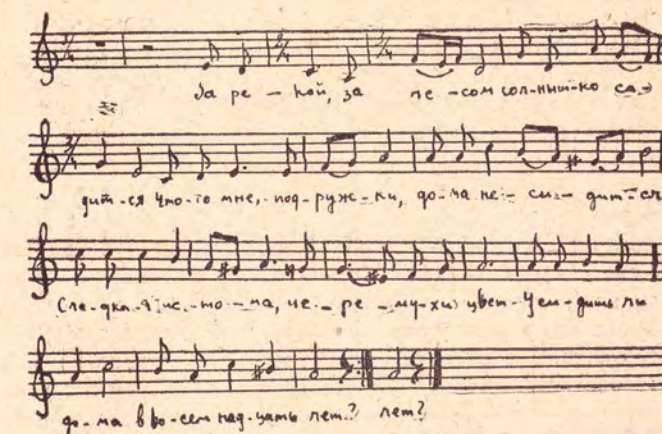 За ре - кой, за ле - сом сол-ныш-ко са -
дит-ся Что-то мне, - под - руж - ки, до - ма не - си - дит-ся
Сла-дка-я ис - то - ма, че - ре - му-хи цвет - У си-дишь ли
до - ма в во - сем над - цать лет? лет?